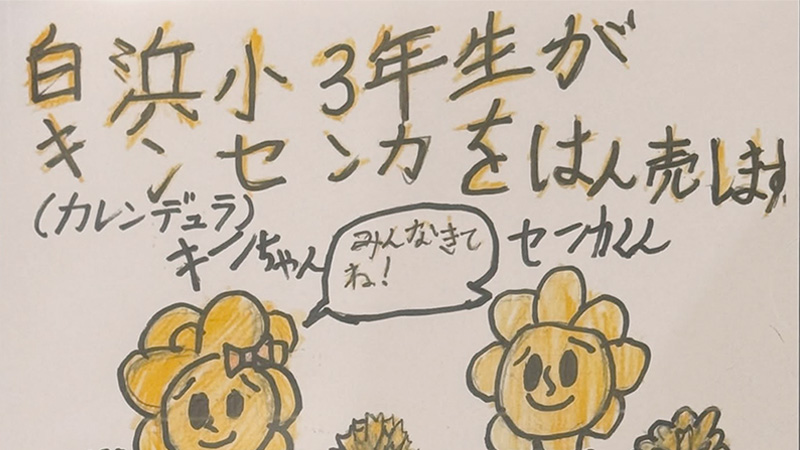 白浜小3年生が
キンセンカをはん売します
(カレンデュラ)
キンちゃん
みんなきて
ね!
センカくん